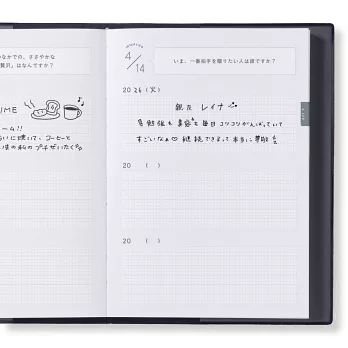 なかでの、ささやかな
贅沢」はなんですか?
IME
ーム!!
いに焼いて、コーヒーと
の私のプチぜいたく
4/14
いま、一番拍手を贈りたい人は誰ですか?
2026(火)
親友 レイナ
勉強も 美容も 毎日 コツコツがんばっていて
すごいなぁ♡ 継続できるって本当に尊敬
20 ( )
20 ( )